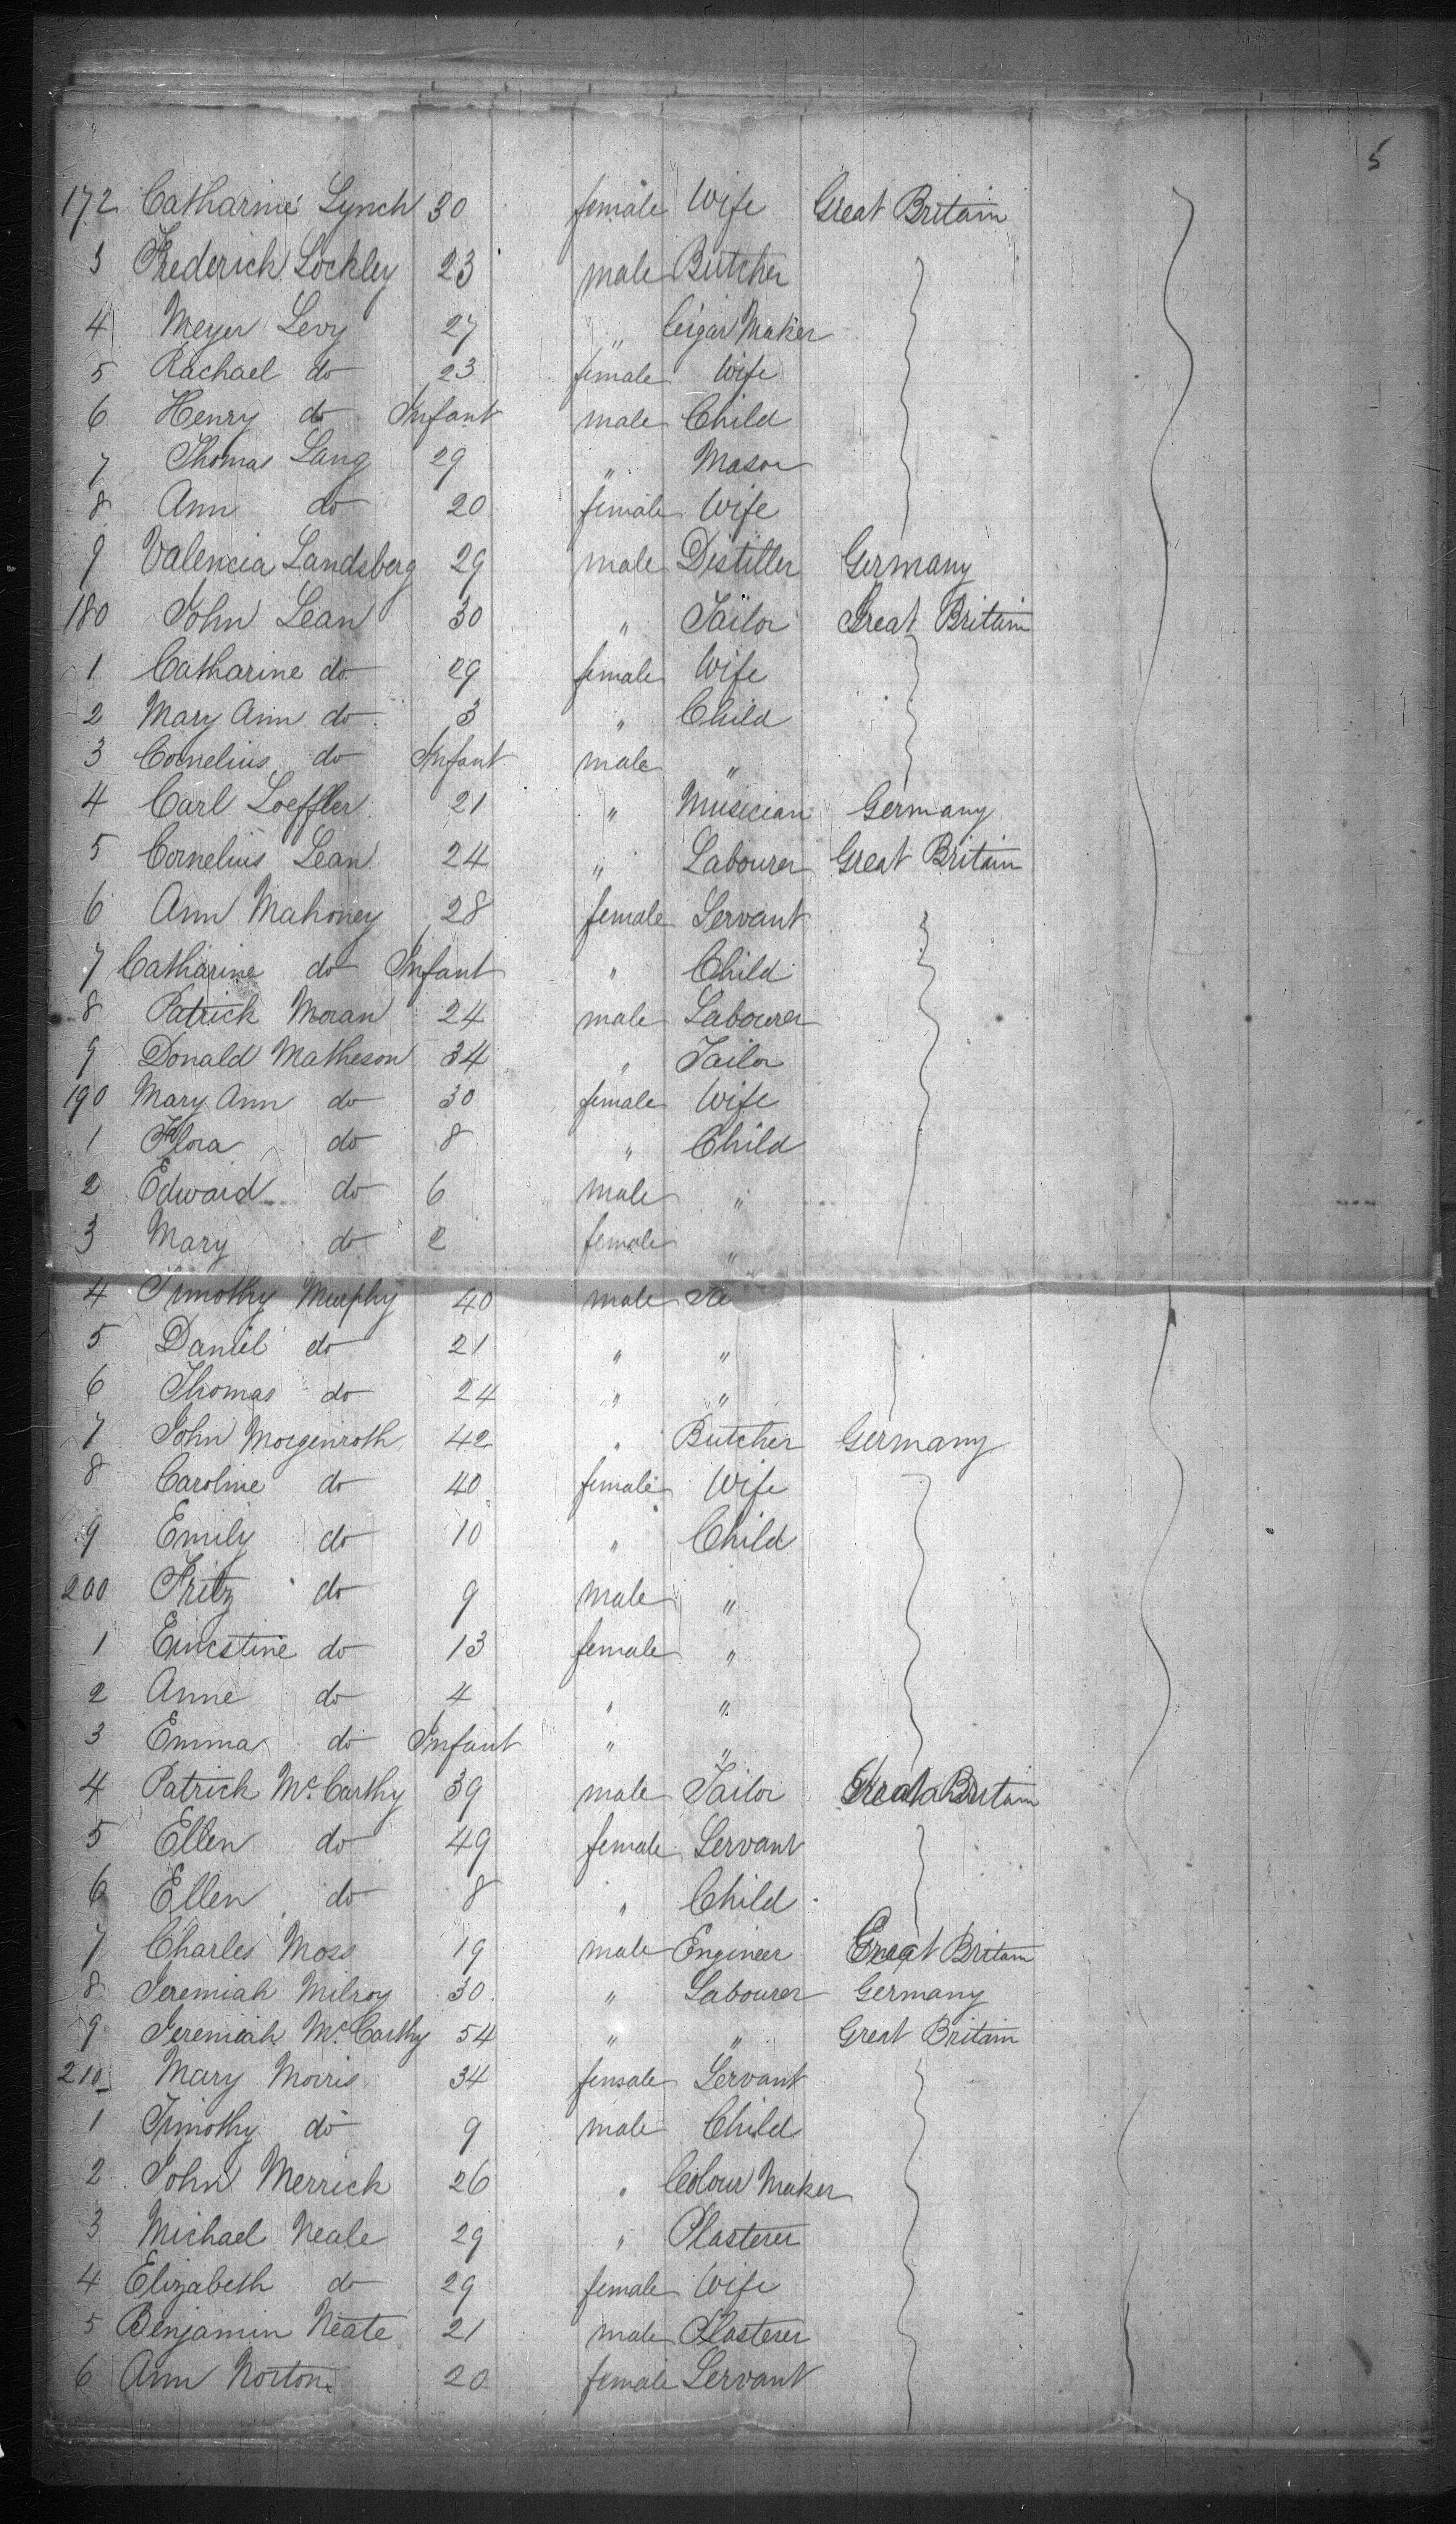 5
172 Catharine Lynch 30 female Wife Great Britain
3 Frederick Lockley 23 male Butcher
4 Meyer Levy 27 " Cigar Maker
5 Rachael do 23 female Wife
6 Henry do Infant male Child
7 Thomas Lang 29 " Mason
8 Ann do 20 female Wife
9 Valencia Landsberg 29 male Distiller Germany
180 John Lean 30 " Tailor Great Britain
1 Catharine do 29 female Wife
2 Mary Ann do 3 " Child
3 Cornelius do Infant male "
4 Carl Loeffler 21 " Musician Germany
5 Cornelius Lean 24 " Labourer Great Britain
6 Ann Mahoney 28 female Servant
7 Catharine do Infant " Child
8 Patrick Moran 24 male Labourer
9 Donald Matheson 34 " Tailor
190 Mary Ann do 30 female Wife
1 Flora do 8 " Child
2 Edward do 6 male "
3 Mary do 2 female "
4 Timothy Murphy 40 male
5 Daniel do 21 " "
6 Thomas do 24 " "
7 John Morgenroth 42 " Butcher Germany
8 Caroline do 40 female Wife
9 Emily do 10 " Child
200 Fritz do 9 male "
1 Ernestine do 13 female "
2 Anne do 4 " "
3 Emma do Infant " "
4 Patrick McCarthy 39 male Tailor Great Britain
5 Ellen do 49 female Servant
6 Ellen do 8 " Child
7 Charles Moss 19 male Engineer Great Britain
8 Jeremiah Milroy 30 " Labourer Germany
9 Jeremiah McCarthy 54 " " Great Britain
210 Mary Morris 34 female Servant
1 Timothy do 9 male Child
2 John Merrick 26 " Colour Maker
3 Michael Neale 29 " Plasterer
4 Elizabeth do 29 female Wife
5 Benjamin Neate 21 male Plasterer
6 Ann Norton 20 female Servant